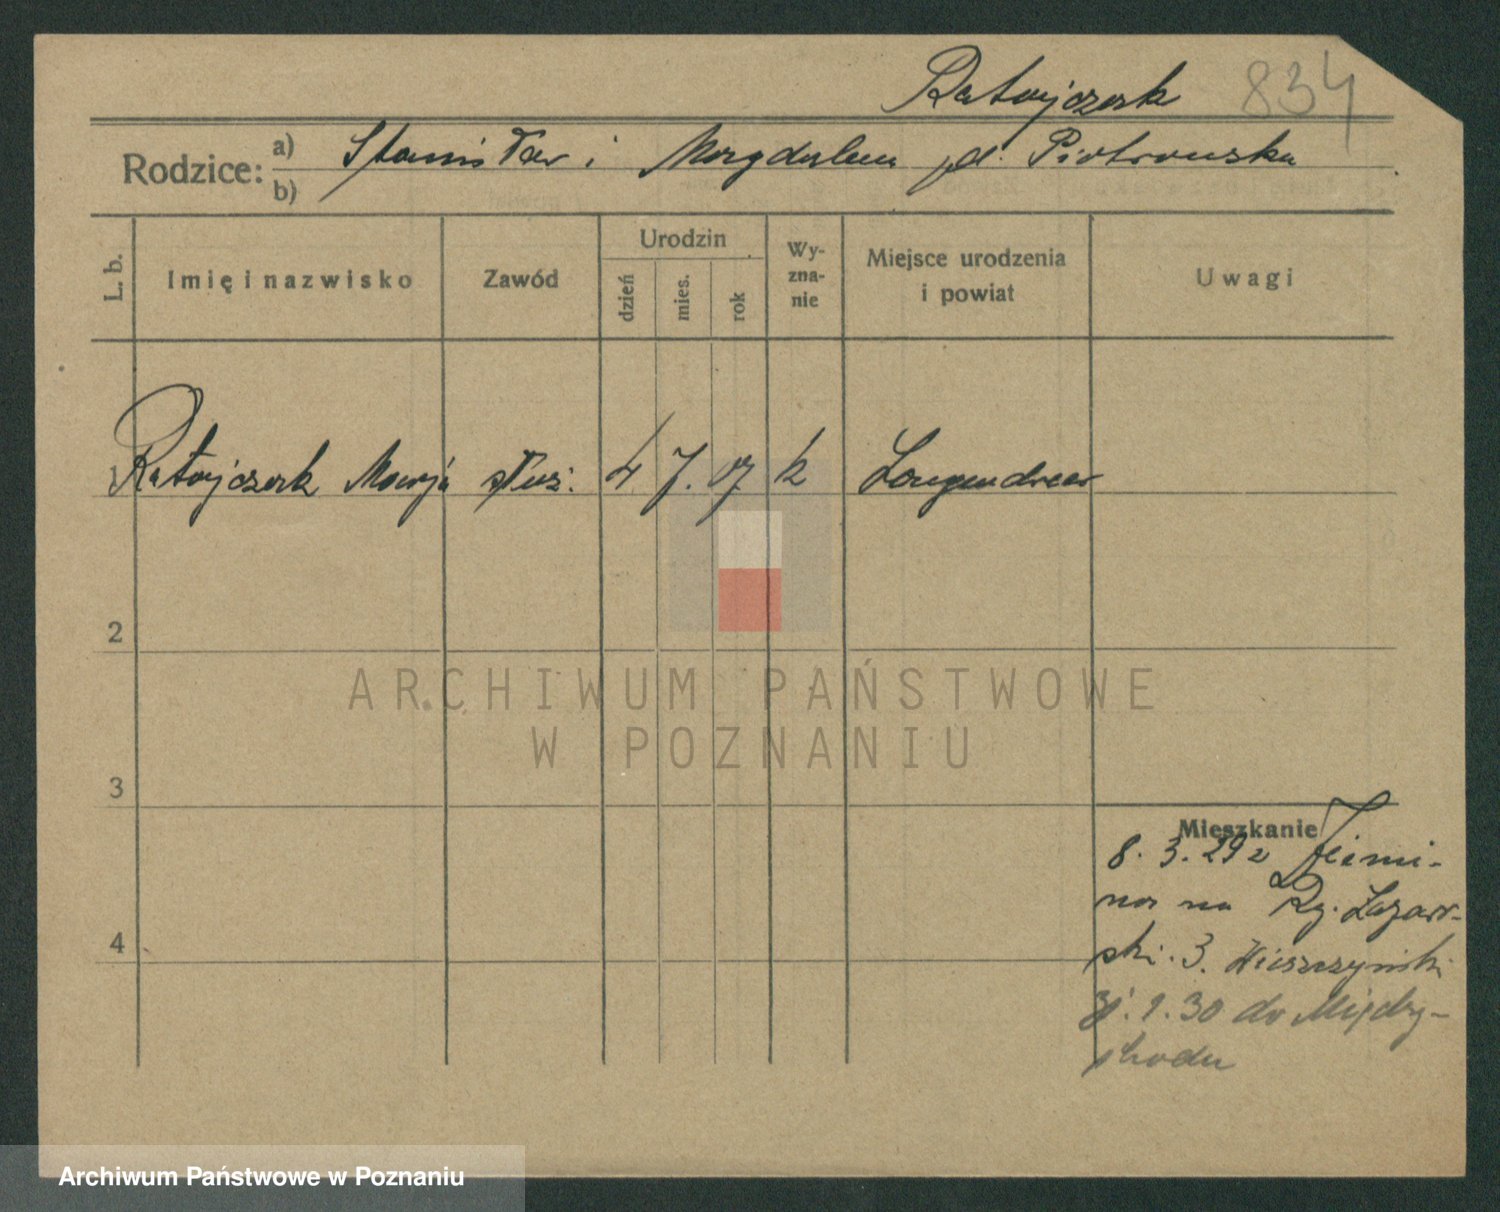 Ratajczak 834
Rodzice: a) Stanisław i Magdalena pd. Piotrowska
b)
L. b. Imię i nazwisko Zawód Urodzin dzień mies. rok Wy-zna-nie Miejsce urodzenia i powiat Uwagi
1 Ratajczak Marja służ. 4 7. 07 k Langendreer
2
3
4
Mieszkanie
8. 3. 29 z Jezior-
na Ry. Łazar-
ski. 3.
31. 1. 30 do Między-
chodu
ARCHIWUM PAŃSTWOWE
W POZNANIU
Archiwum Państwowe w Poznaniu